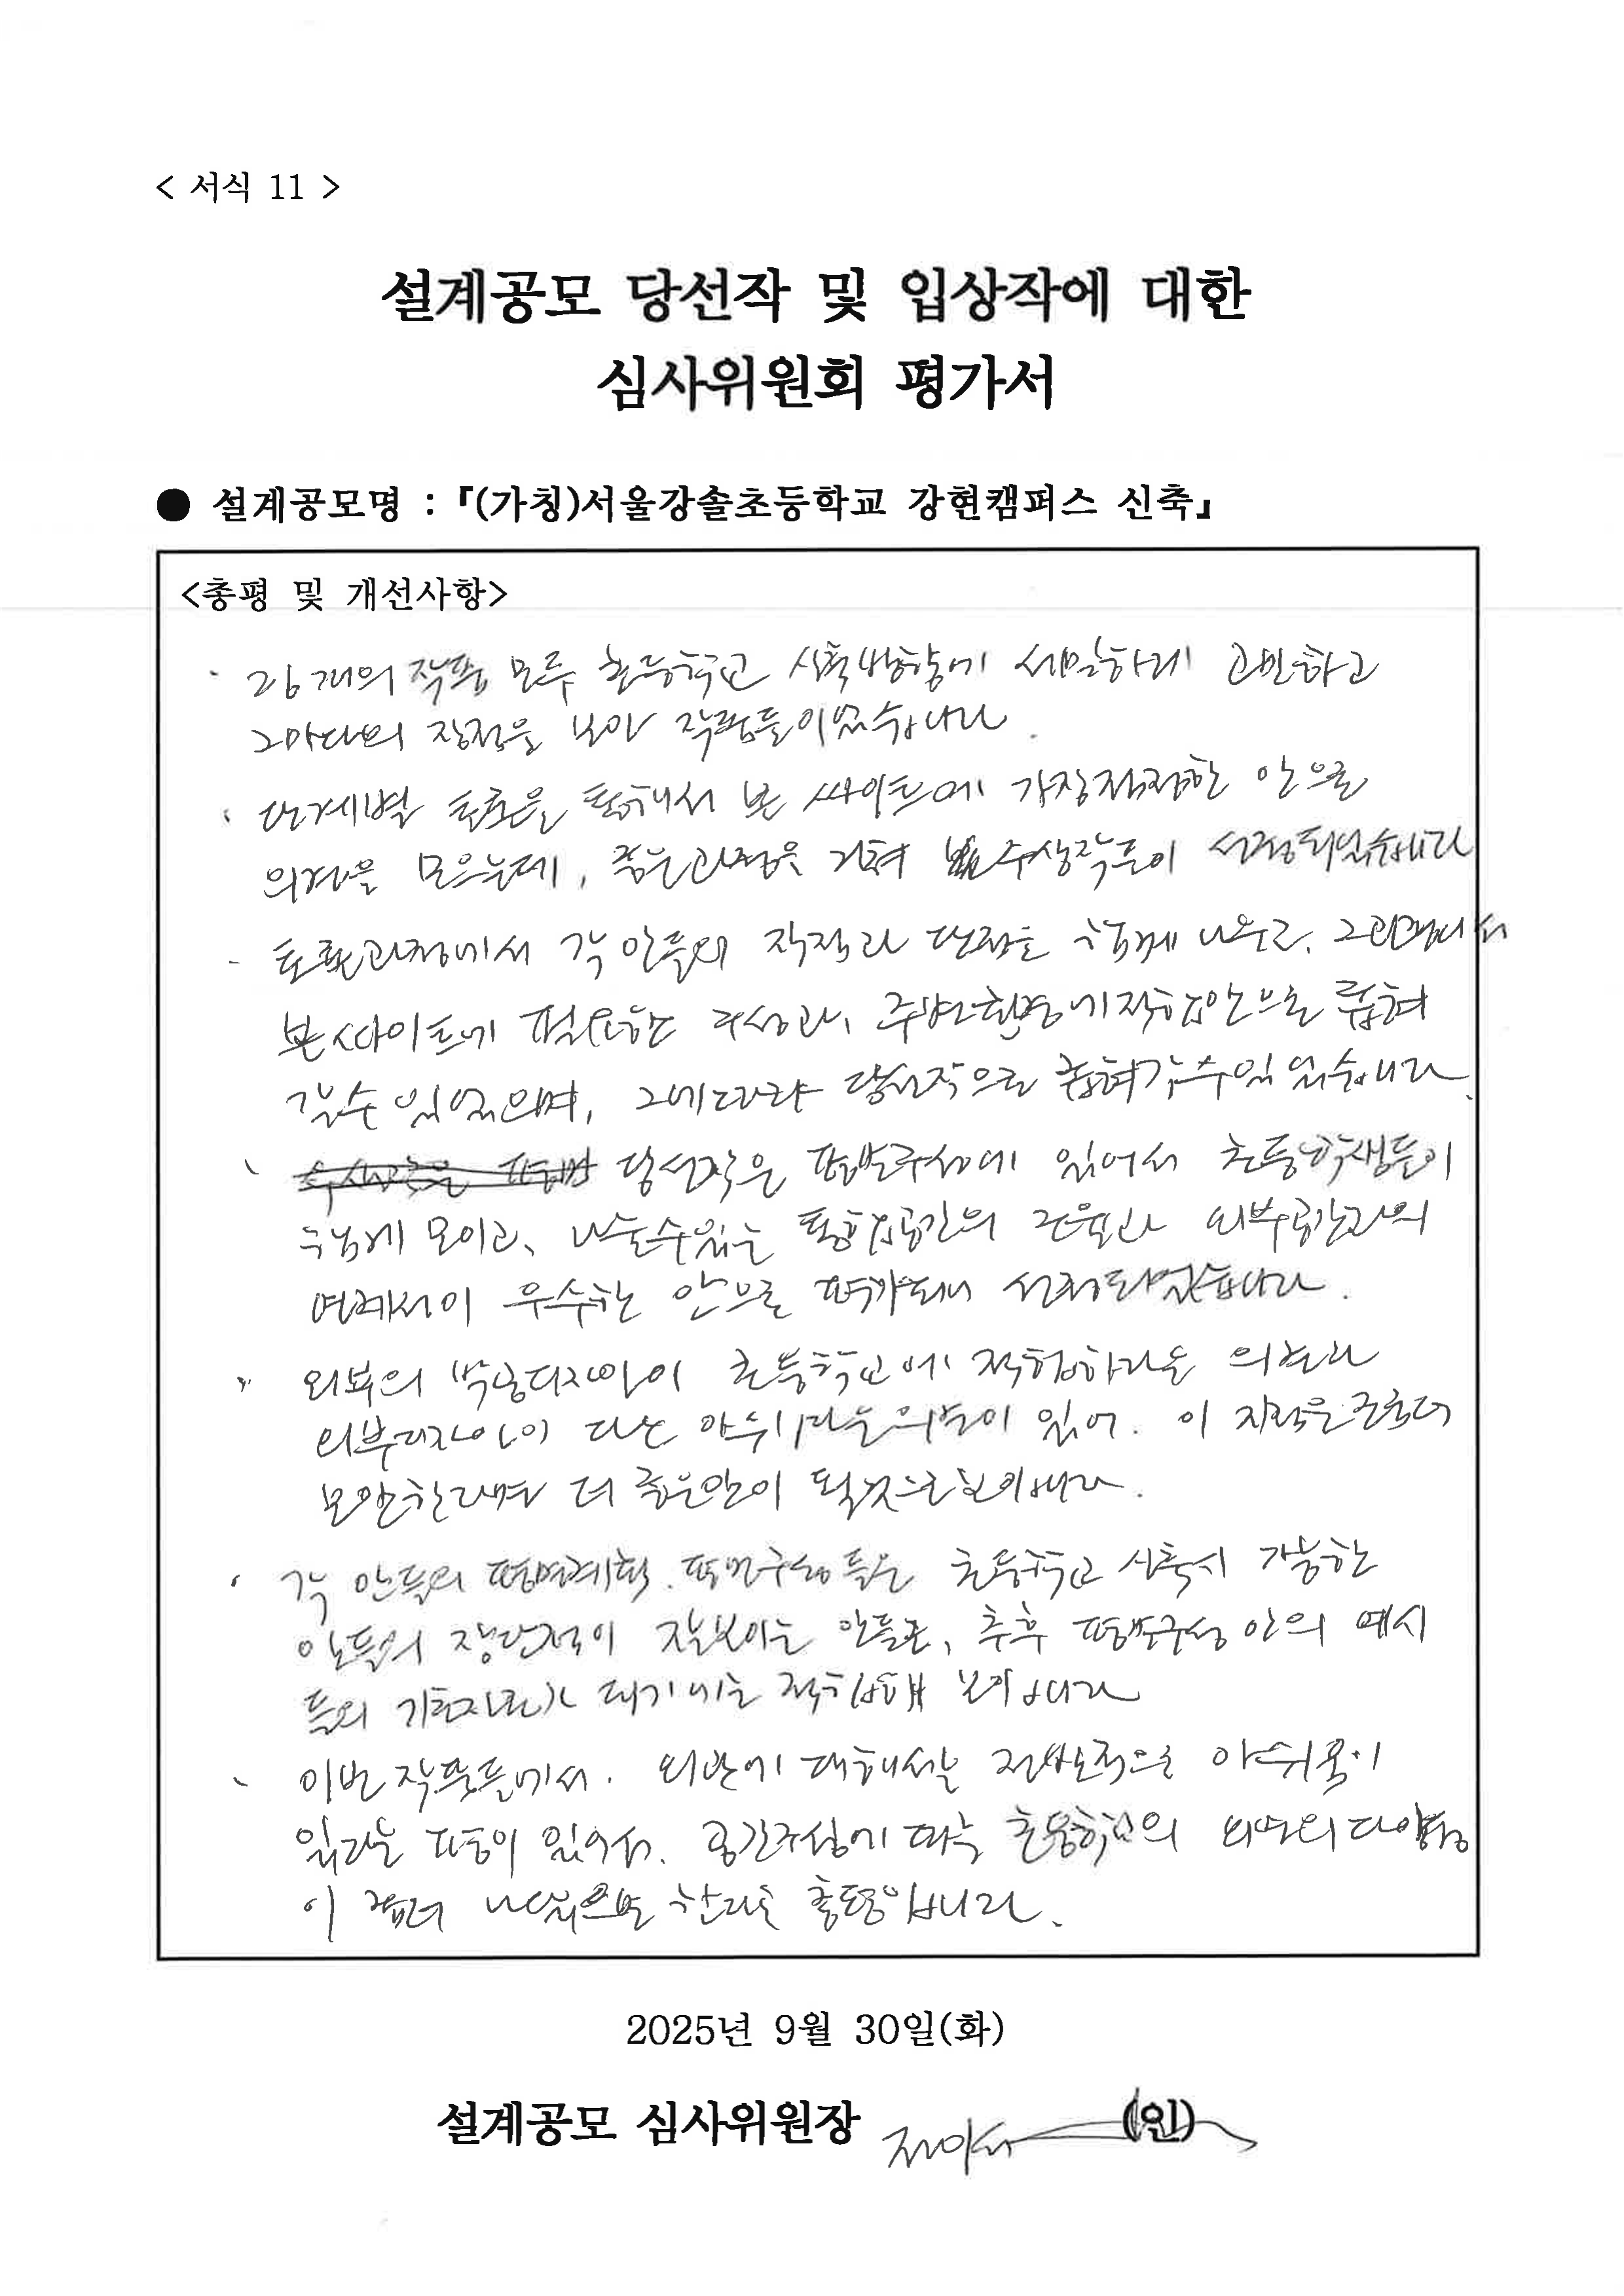 < 서식 11 >
설계공모 당선작 및 입상작에 대한
심사위원회 평가서
● 설계공모명 : 『(가칭)서울강솔초등학교 강현캠퍼스 신축』
<총평 및 개선사항>
· 26개의 작품 모두 초등학교 신축방향에 세밀하게 고민하고
그마다의 장점을 보인 작품들이었습니다.
· 단계별 토론을 통해서 본 싸이트에 가장 적절한 안으로
의견을 모으는데, 좋은과정을 거쳐 수상작들이 선정되었습니다
- 토론과정에서 각 안들의 장점과 단점을 함께 나누고,
본 싸이트에 필요한 구성과, 주변환경에 적합안으로 좁혀
갈수 있었으며, 그에따라 당선작으로 좁혀갈수 있었습니다.
당선작은 평면구성에 있어서 초등학생들이
함께 모이고, 나눌수있는 통합공간의 구성과 외부공간과의
연계성이 우수한 안으로 평가되어 선정되었습니다.
외부의 디자인이 초등학교에 적합하다는 의견과
외부디자인이 다소 아쉽다는의견이 있어. 이 지적을
보완한다면 더 좋은안이 될것으로 보입니다.
· 각 안들의 평면계획. 평면구성 등은 초등학교 신축시 가능한
안들의 장단점이 잘보이는 안들로, 추후 평면구성 안의 예시
들의 기초자료가 되기에는 적합해 보입니다
이번 작품들에서. 외관에 대해서는 전반적으로 아쉬움이
있다는 평이 있어서. 공간구성에 따른 초등학교의 외관의 다양성
이 나왔으면 한다는 총평입니다.
2025년 9월 30일(화)
설계공모 심사위원장 (인)